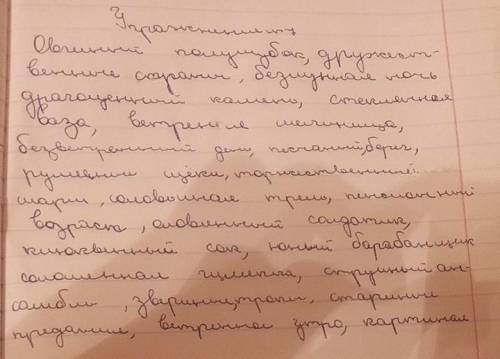 Упражнение
Овчинный полушубок, дружест-
венные страны, безлунная ночь
драгоценный камень, стеклянная
ваза, ветреные мельница,
безветренный день, песчаный берег,
румянные щёки, торжественный
марш, соловьиная трель, пенсионный
возраст, оловянный солдатик,
клюквенный сок, юный барабанщик
соломенная шляпка, струнный ан-
самбль, звериные тропы, старинные
предание, ветренное утро, картинная